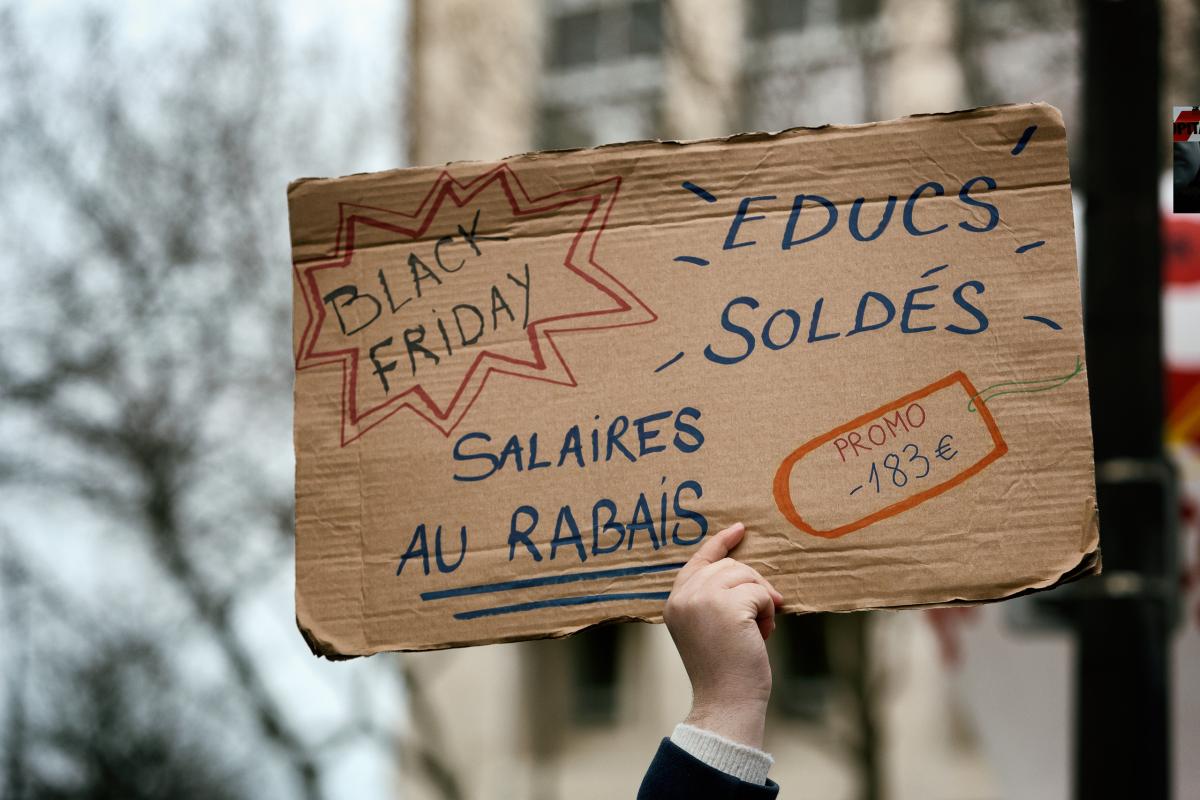 BLACK
FRiDAY
EDUCS
SOLDÉS
SALAiRES
AU RABAiS
PROMO
-183€